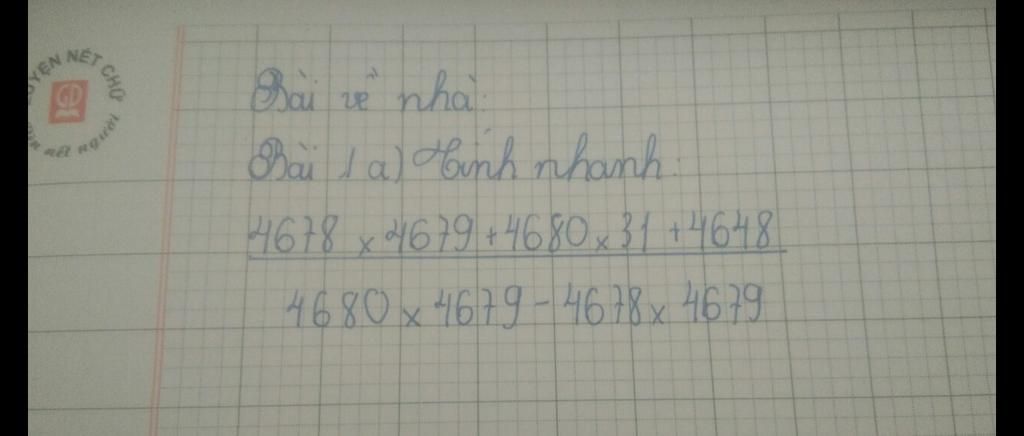 LUYỆN NÉT CHỮ
GD
rèn nết người
Bài về nhà:
Bài 1 a) Tính nhanh:
4678 x 4679 + 4680 x 31 + 4648
4680 x 4679 - 4678 x 4679